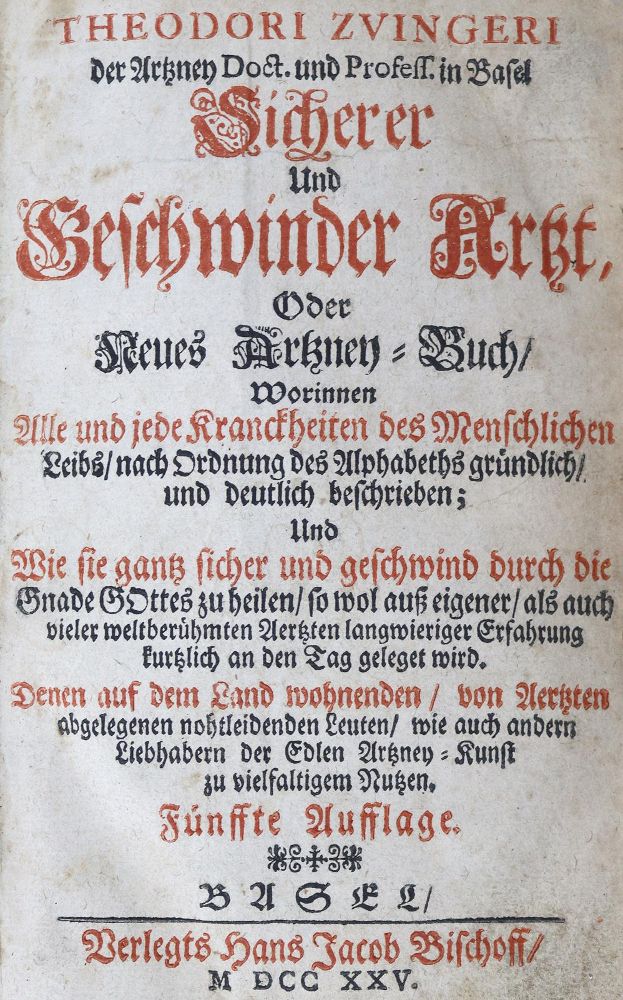 THEODORI ZVINGERI
der Artzney Doct. und Profess. in Basel
Sicherer
Und
Geschwinder Artzt,
Oder
Neues Artzney-Buch/
Worinnen
Alle und jede Kranckheiten des Menschlichen
Leibs/ nach Ordnung des Alphabeths gründlich/
und deutlich beschrieben;
Und
Wie sie gantz sicher und geschwind durch die
Gnade GOttes zu heilen/ so wol auß eigener/ als auch
vieler weltberühmten Aertzten langwieriger Erfahrung
kurtzlich an den Tag geleget wird.
Denen auf dem Land wohnenden/ von Aertzten
abgelegenen nohtleidenden Leuten/ wie auch andern
Liebhabern der Edlen Artzney-Kunst
zu vielfaltigem Nutzen.
Fünffte Aufflage.
BASEL/
Verlegts Hans Jacob Bischoff/
M DCC XXV.